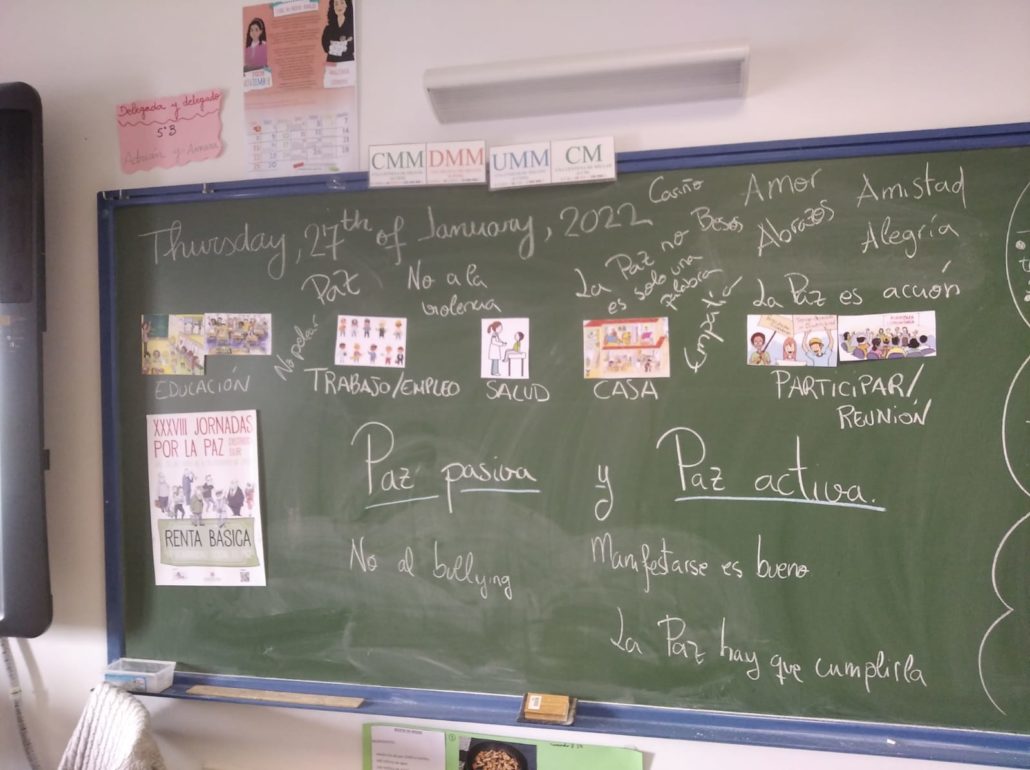 Delegada y delegado
5º B
Adrián y
CMM DMM UMM CM
Thursday, 27th of January, 2022
Cariño Amor Amistad
Besos Abrazos Alegría
Paz
No a la violencia
La Paz no
es solo una
palabra
Empatía
La Paz es acción
No pelear
EDUCACIÓN
TRABAJO/EMPLEO
SALUD
CASA
PARTICIPAR/
REUNIÓN
XXXVIII JORNADAS
POR LA PAZ
RENTA BÁSICA
Paz pasiva y Paz activa.
No al bullying
Manifestarse es bueno
La Paz hay que cumplirla